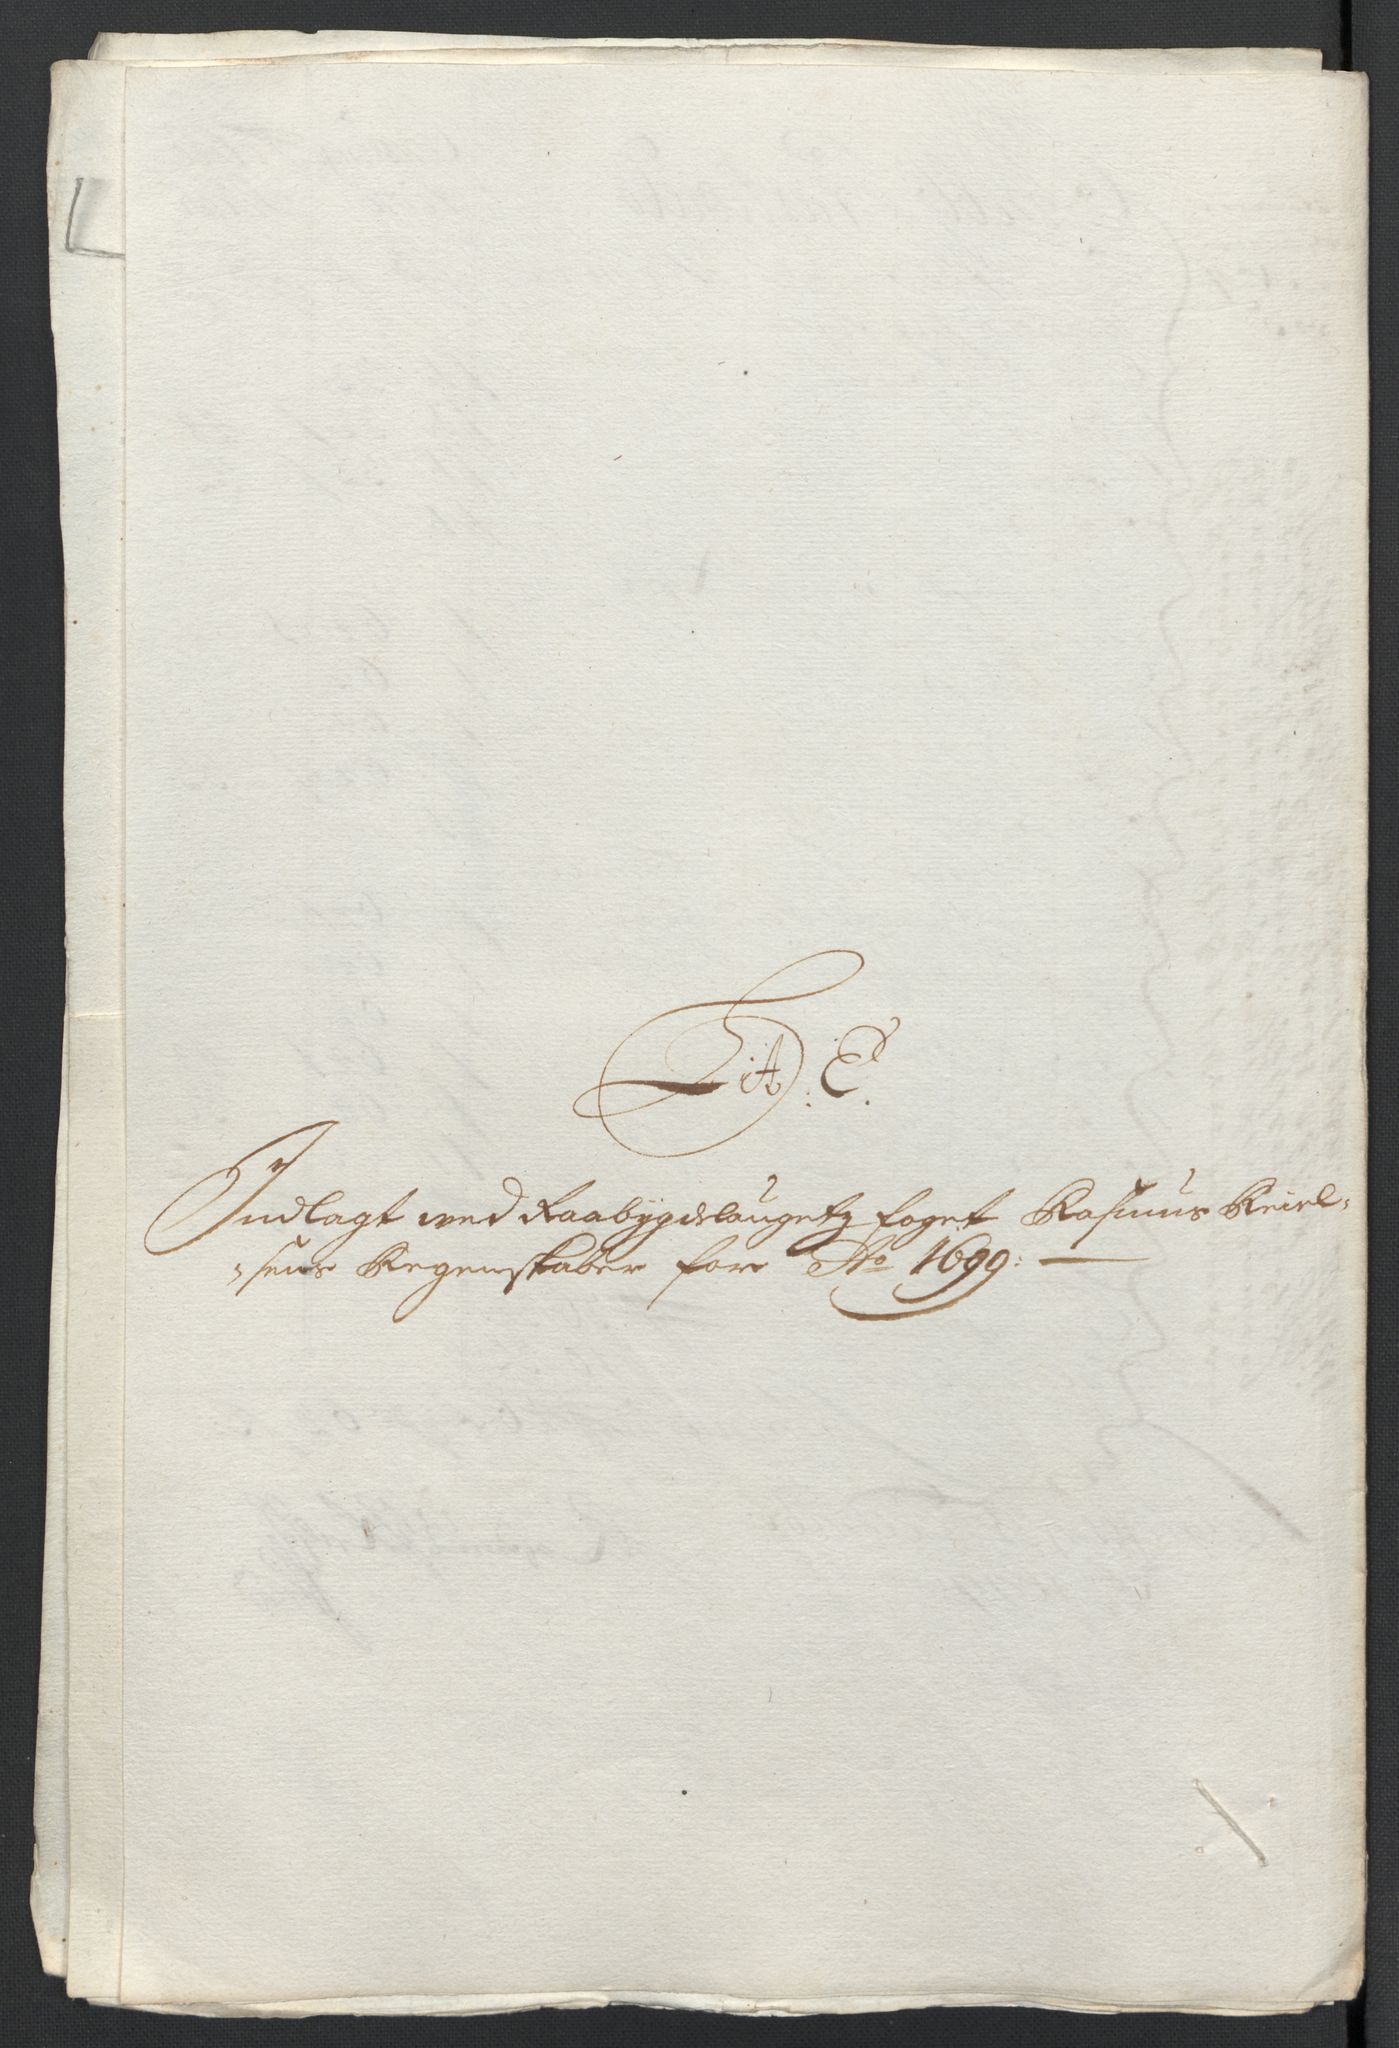 Lit: E.
Indlagt med Raabygdelaugetz foget Rasmus Keiel-
sens Regenskaber for Ao 1699: